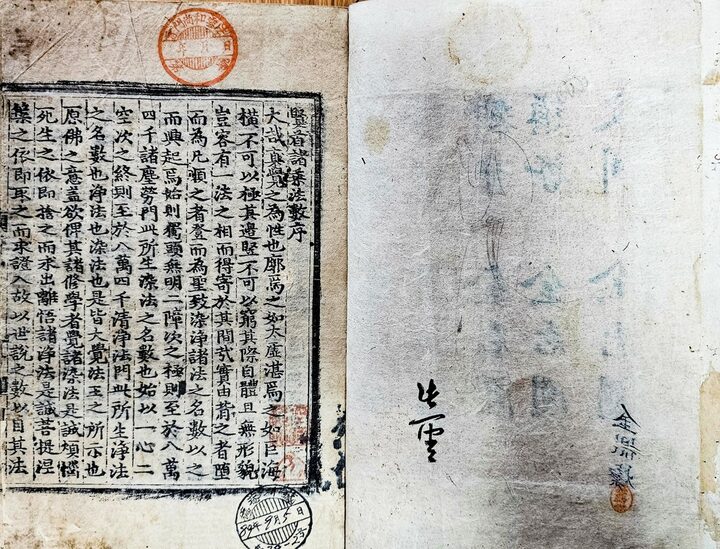 賢首諸乘法數序
大哉真覺之為性也廓焉之如太虛湛焉之如巨海
橫不可以極其邊竪不可以窮其際自體且無形貌
豈容有一法之相而得寄於其間哉實由背之者墮
而為凡順之者登而為聖致染淨諸法之名數以之
而興起焉始則駕頭無明二障次之極則至於八萬
四千諸塵勞門此所生染法之名數也始以一心二
空次之終則至於八萬四千清淨法門此所生淨法
之名數也淨法也染法也是皆大覺法王之所示也
原佛之意蓋欲俾其諸修學者覺諸染法是誠煩惱
死生之依即捨之而求出離悟諸淨法是誠菩提涅
槃之依即取之而求證入故以世說之數以目其法